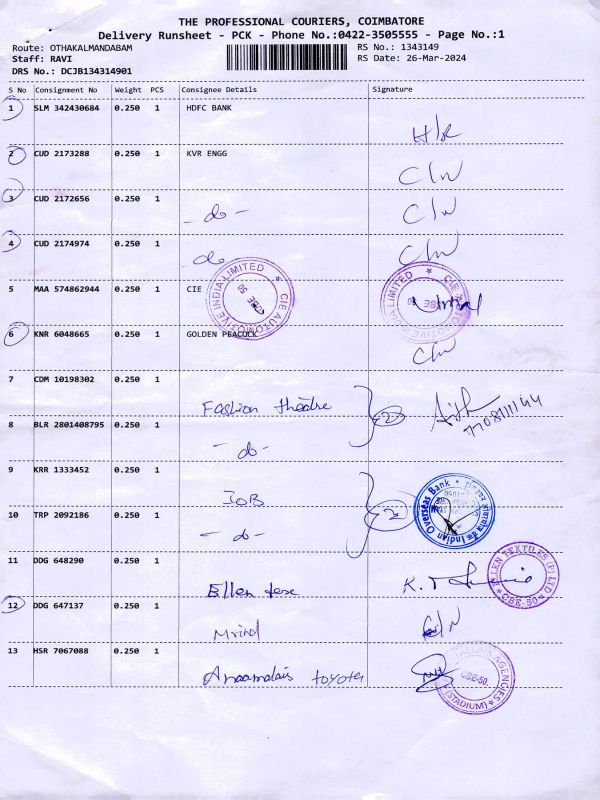 THE PROFESSIONAL COURIERS, COIMBATORE
Delivery Runsheet - PCK - Phone No.:0422-3505555 - Page No.:1
Route: OTHAKALMANDABAM
RS No.: 1343149
Staff: RAVI
RS Date: 26-Mar-2024
DRS No.: DCJB134314901
S No Consignment No Weight PCS Consignee Details Signature
1 SLM 342430684 0.250 1 HDFC BANK
2 CUD 2173288 0.250 1 KVR ENGG
3 CUD 2172656 0.250 1
- do -
4 CUD 2174974 0.250 1
do
5 MAA 574862944 0.250 1 CIE
CIE AUTOMOTIVE INDIA LIMITED
CBE 50
CIE AUTOMOTIVE INDIA LIMITED
6 KNR 6048665 0.250 1 GOLDEN PEACOCK
7 CDM 10198302 0.250 1
Fashion theatre
2
8 BLR 2801408795 0.250 1
- do -
9 KRR 1333452 0.250 1
IOB
2
Indian Overseas Bank
10 TRP 2092186 0.250 1
- do -
11 DDG 648290 0.250 1
Ellen texe
ELLEN TEXTILES (P) LTD
CBE-50
12 DDG 647137 0.250 1
13 HSR 7067088 0.250 1
Anaamalais toyota
AGENCIES
CBE-50.
(STADIUM)